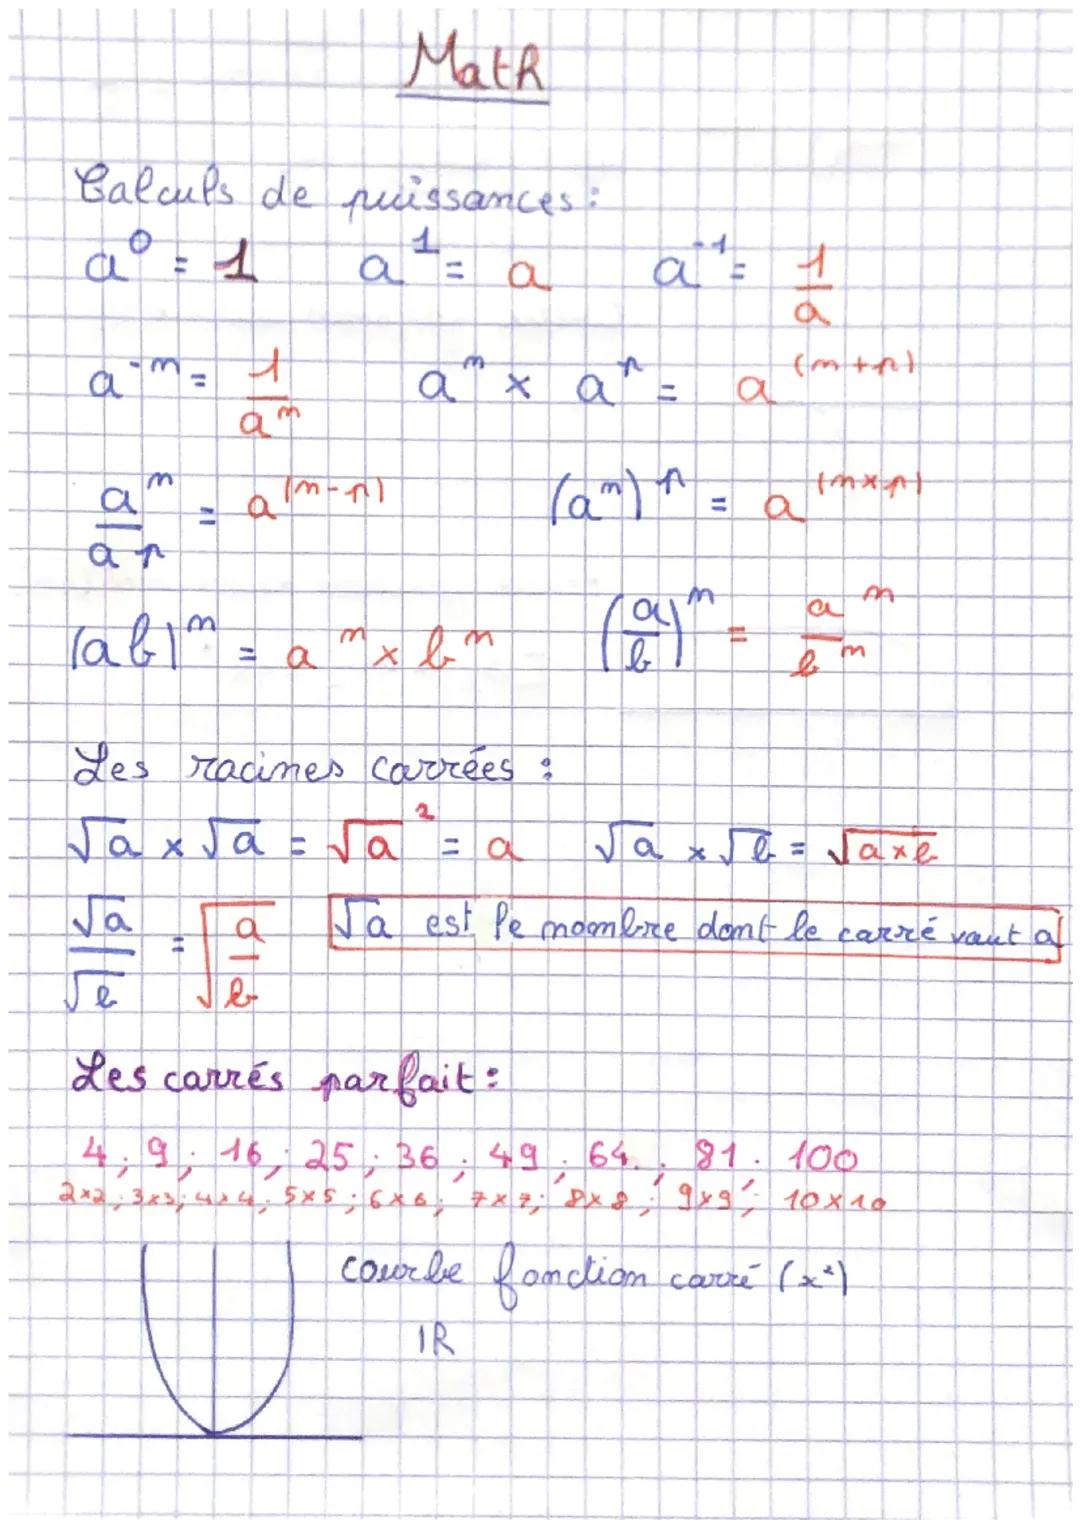 Math
Calculs de puissances :
a⁰ = 1   a¹ = a   a⁻¹ = 1/a
a⁻ⁿ = 1/aⁿ   aⁿ × aᵖ = a⁽ⁿ⁺ᵖ⁾
aⁿ/aᵖ = a⁽ⁿ⁻ᵖ⁾   (aⁿ)ᵖ = a⁽ⁿˣᵖ⁾
(ab)ⁿ = aⁿ × bⁿ   (a/b)ⁿ = aⁿ/bⁿ
Les racines carrées :
√a × √a = √a² = a   √a × √b = √(a×b)
√a/√b = √(a/b)   √a est le nombre dont le carré vaut a
Les carrés parfait :
4 ; 9 ; 16 ; 25 ; 36 ; 49 ; 64 ; 81 ; 100
2×2 ; 3×3 ; 4×4 ; 5×5 ; 6×6 ; 7×7 ; 8×8 ; 9×9 ; 10×10
courbe fonction carré (x²)
IR